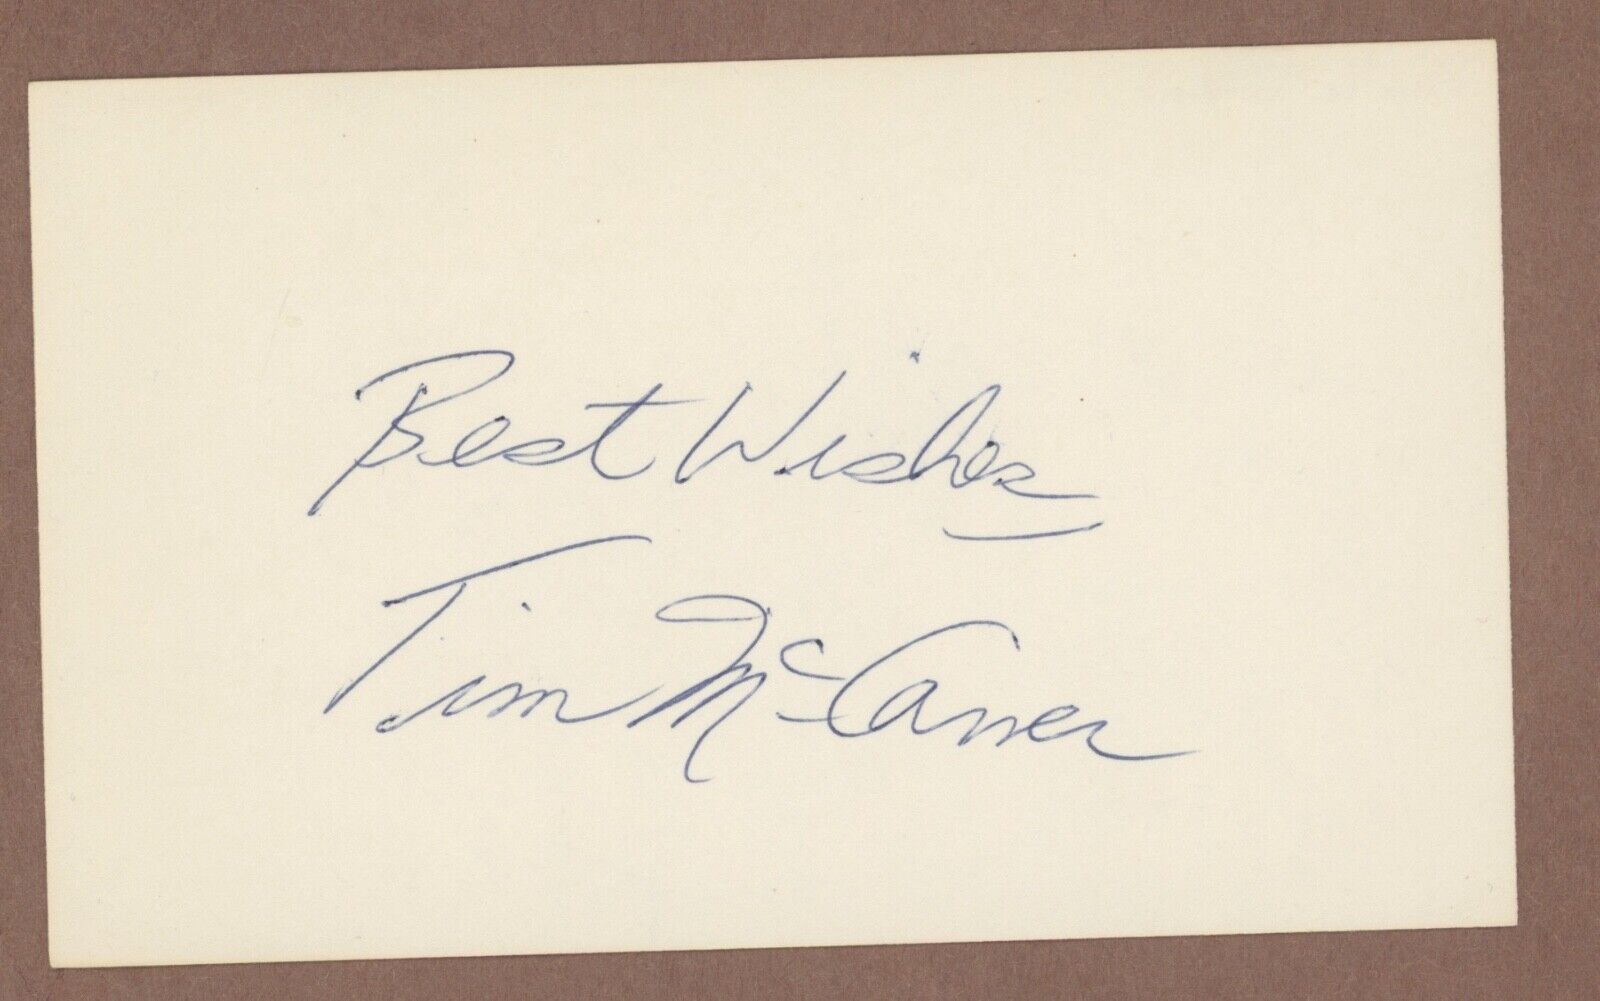 Best Wishes
Tim McCarver